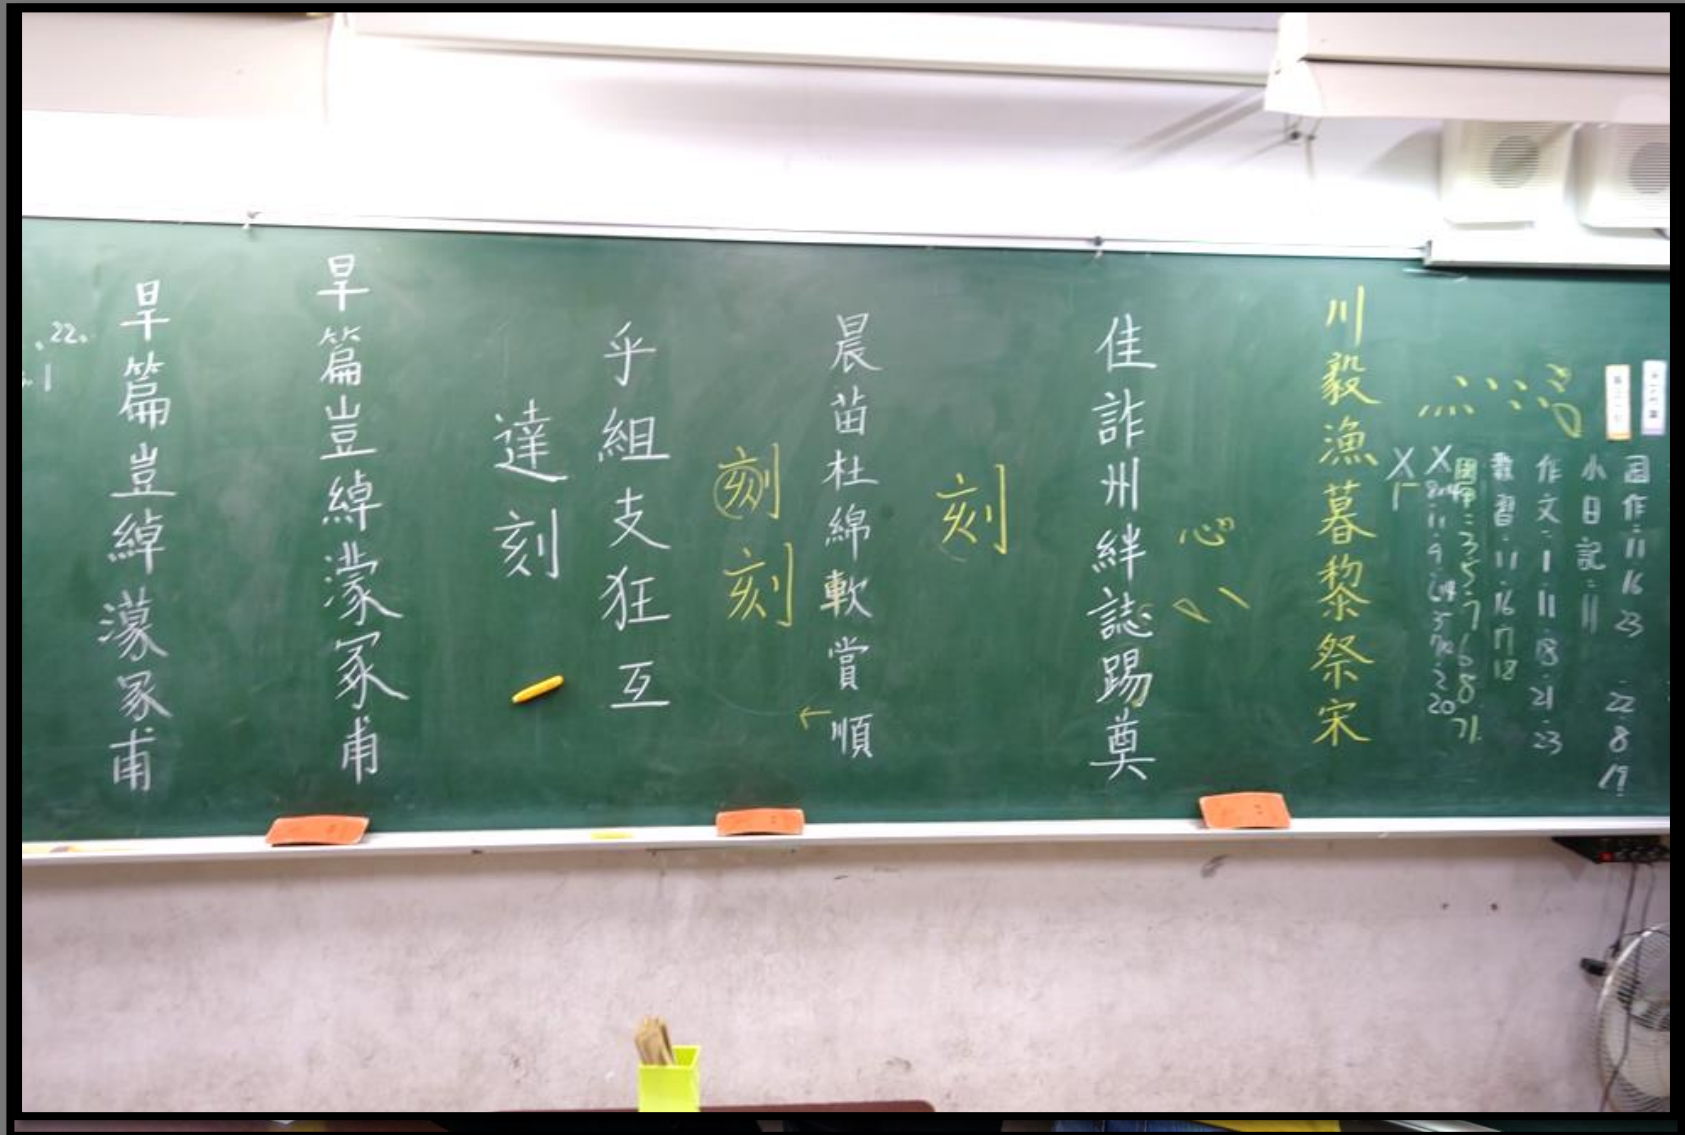 国作:11 16 23 22 8 19
小日記:11
作文:1 11 18 21 23
數習:11 16 17 18
川毅漁暮黎祭宋
心
佳詐州絆誌踢奠
刻
晨苗杜綿軟賞順
←
刻
刻
乎組支狂互
達刻
旱篇豈綽濛冢甫
旱篇豈綽濛冢甫
22.